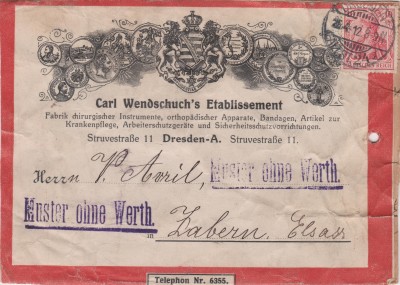 Carl Wendschuch's Etablissement
Fabrik chirurgischer Instrumente, orthopädischer Apparate, Bandagen, Artikel zur
Krankenpflege, Arbeiterschutzgeräte und Sicherheitsvorrichtungen.
Struvestraße 11 Dresden-A. Struvestraße 11.
Herrn V. Avril,
Muster ohne Werth.
Muster ohne Werth.
in Zabern. Elsass
Telephon Nr. 6355.